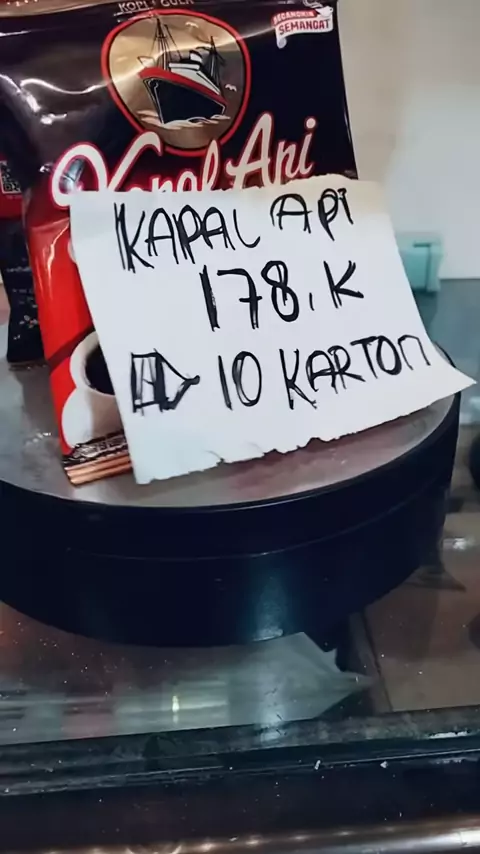 KOPI + GULA
SECANGKIR
SEMANGAT
Kapal Api
KAPAL API
178.K
10 KARTON